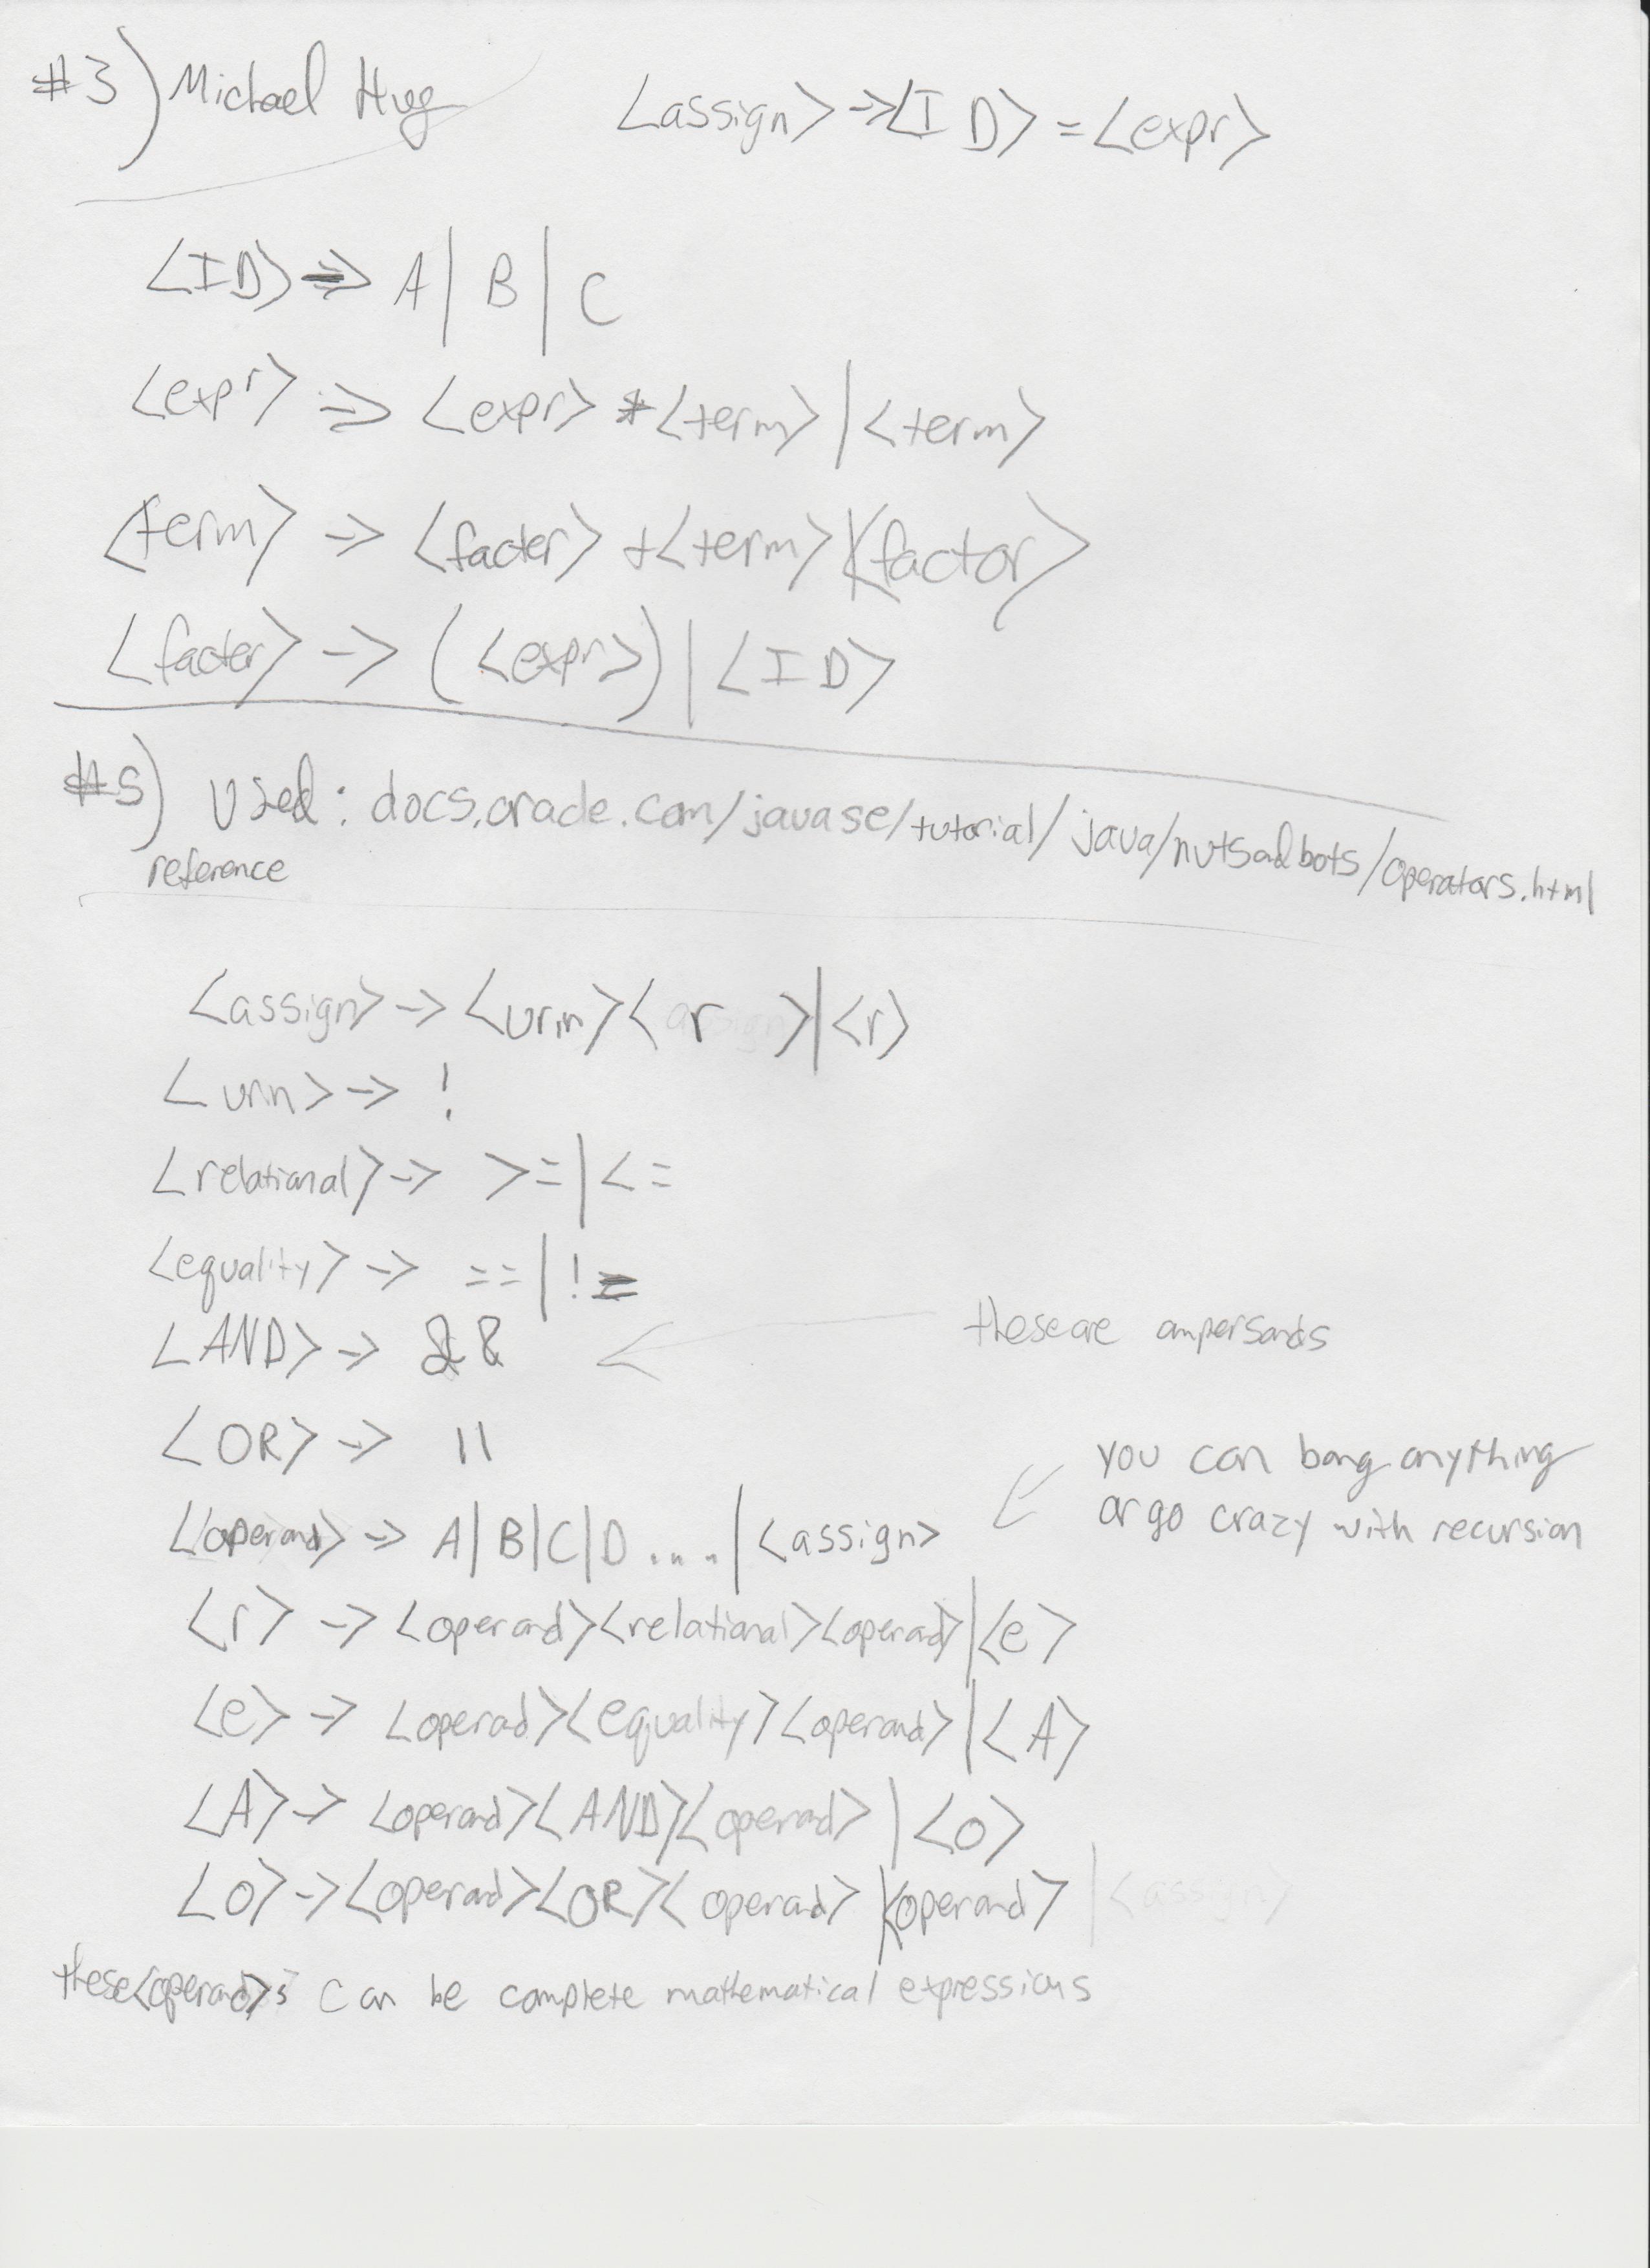 #3) Michael Hug <assign> -> <ID> = <expr>
<ID> => A | B | C
<expr> => <expr> * <term> | <term>
<term> -> <facter> + <term> | <factor>
<facter> -> (<expr>) | <ID>
#5) Used: docs.oracle.com/javase/tutorial/java/nutsadbots/operators.html
reference
<assign> -> <urin> < r > | <r>
<urin> -> !
<relational> -> >= | <=
<equality> -> == | !=
<AND> -> && these are ampersands
<OR> -> ||
you can bang anything
or go crazy with recursion
<operand> -> A | B | C | D .... | <assign>
<r> -> <operand> <relational> <operand> | <e>
<e> -> <operad> <equality> <operand> | <A>
<A> -> <operand> <AND> <operad> | <O>
<O> -> <operad> <OR> < operad> | <operand> | <assign>
these <operand>s can be complete mathematical expressions